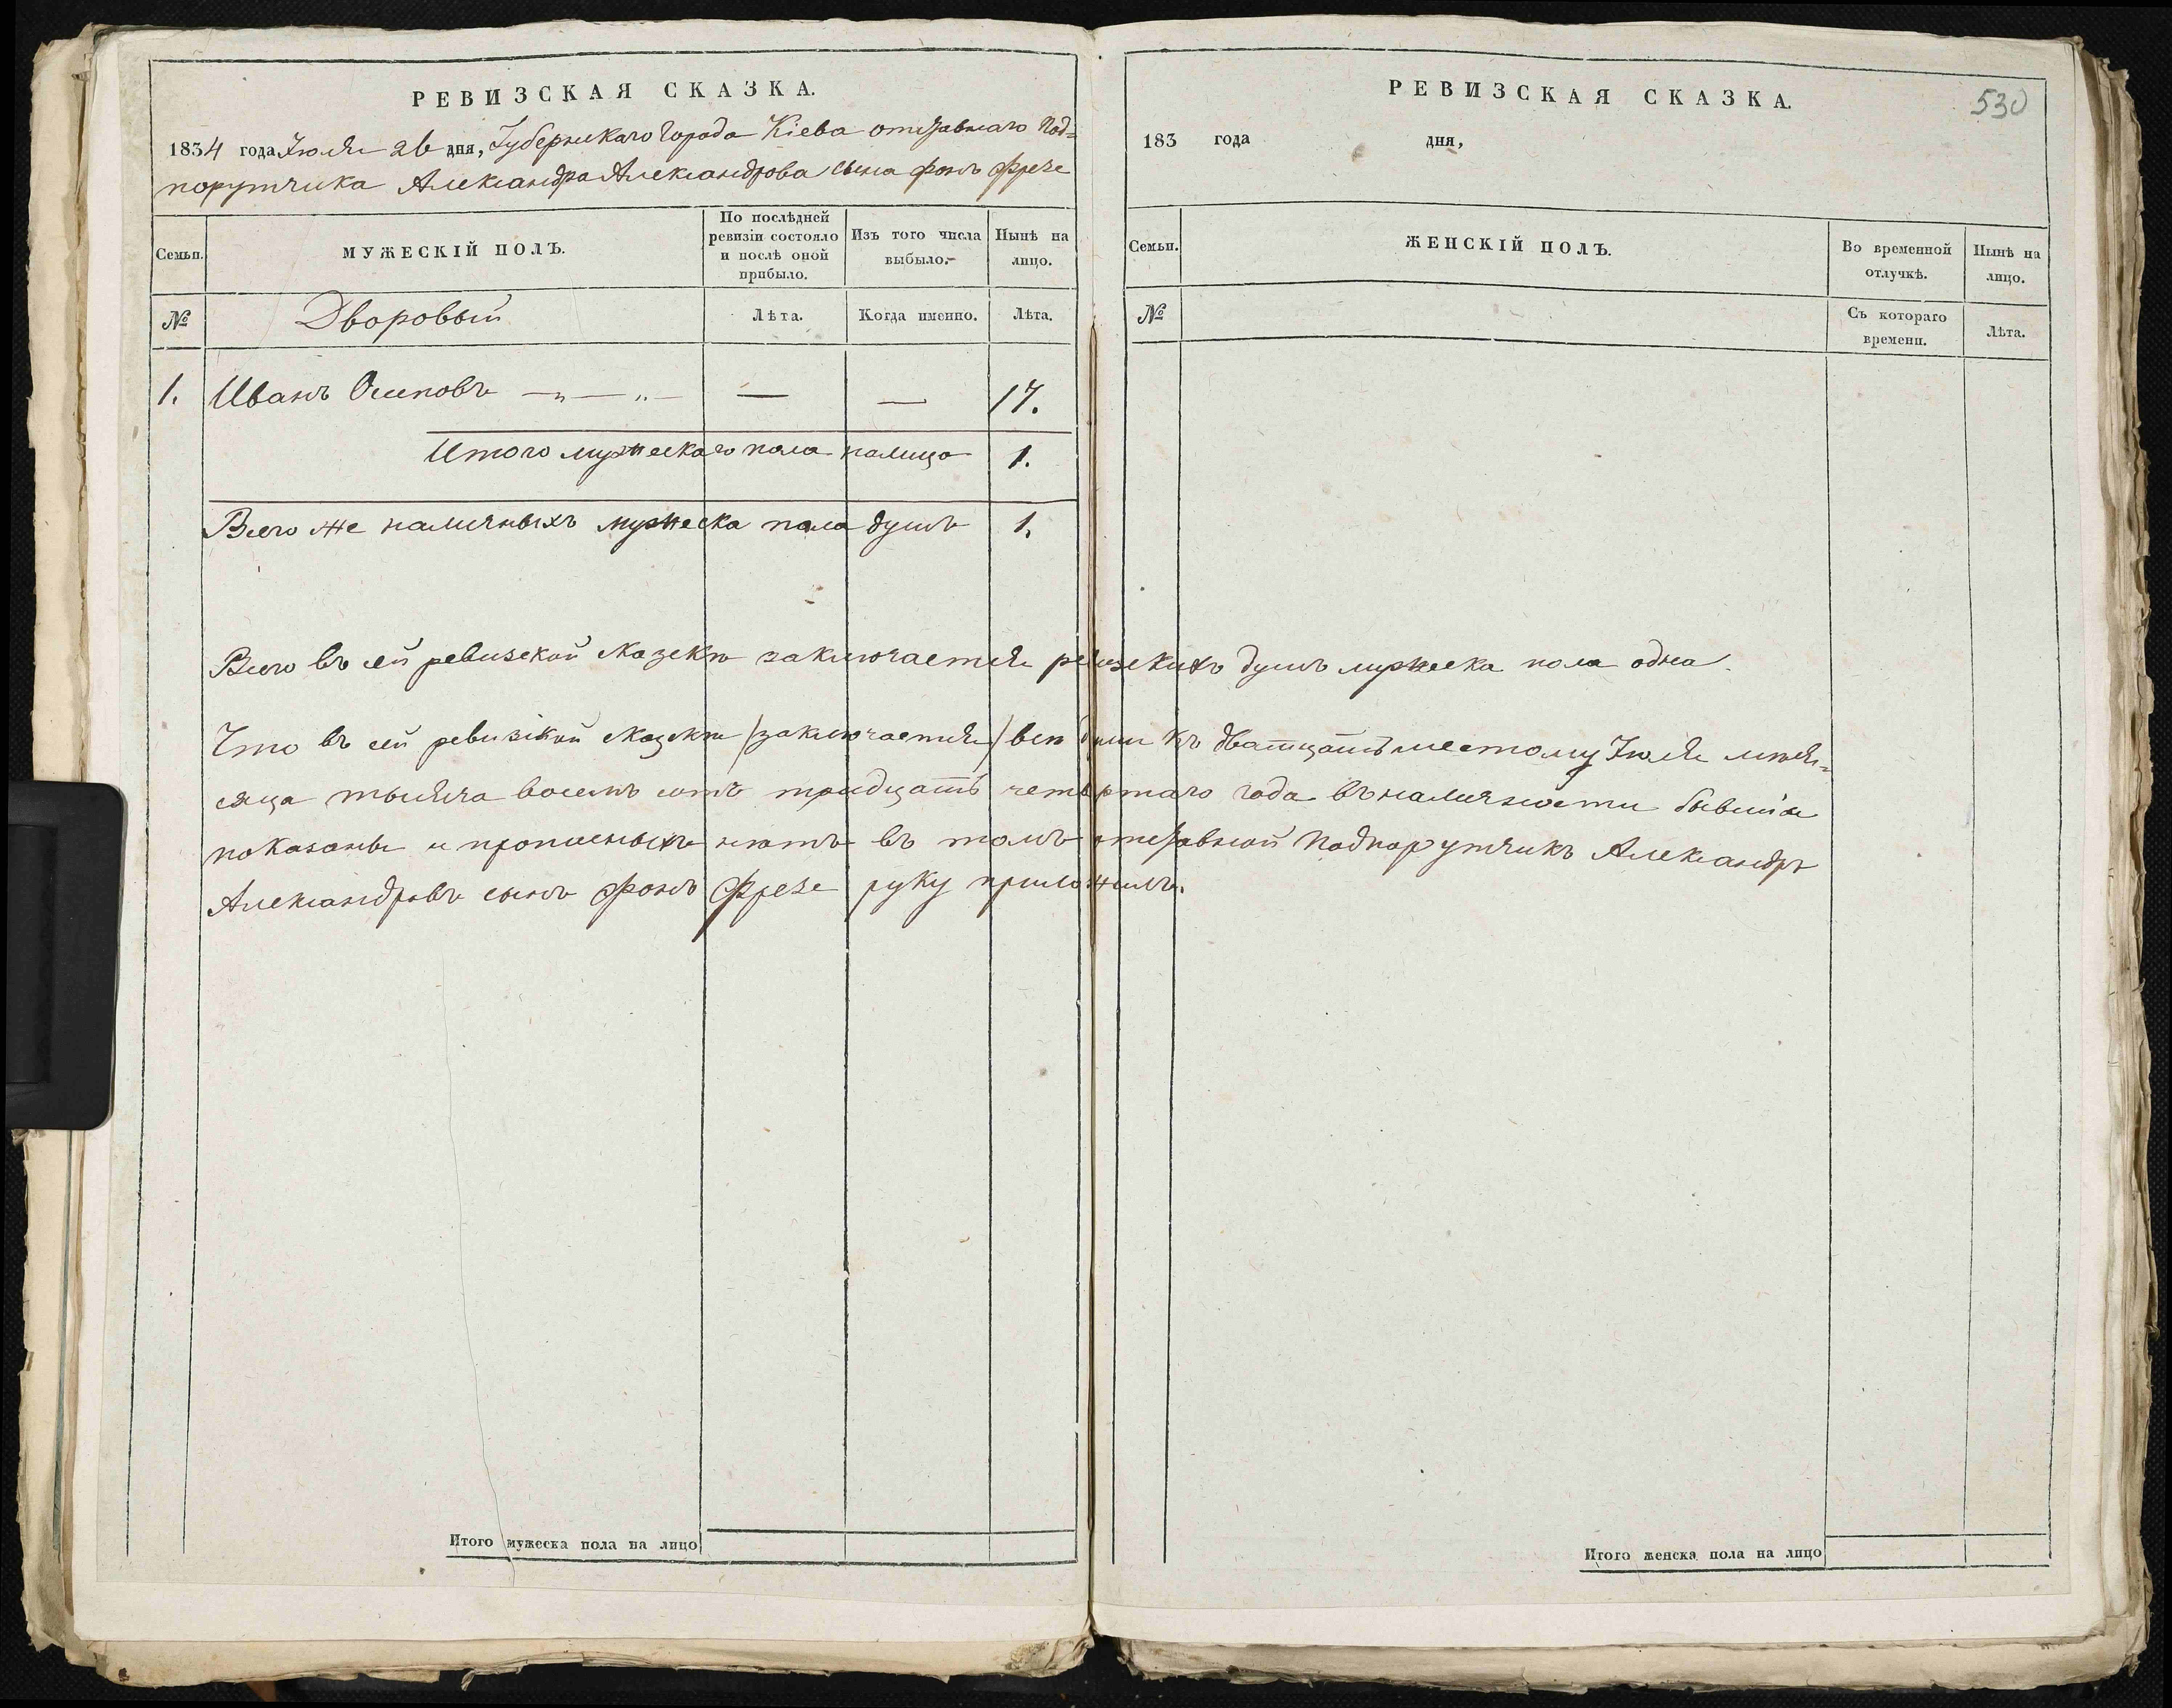 РЕВИЗСКАЯ СКАЗКА.
1834 года Іюля 26 дня, Губернскаго Города Кіева отставнаго Под=
порутчика Александра Александрова сына фонъ Фрезе
Семьи.
МУЖЕСКІЙ ПОЛЪ.
По послѣдней
ревизіи состояло
и послѣ оной
прибыло.
Изъ того числа
выбыло.
Нынѣ на
лицо.
№
Дворовый
Лѣта.
Когда именно.
Лѣта.
1. Иванъ Осиповъ — „ — „ — — — 17.
Итого мужескаго пола налицо 1.
Всего же наличныхъ мужеска пола душъ 1.
Всего въ сей ревизской сказкѣ заключается ревизскихъ душъ мужеска пола одна.
Что въ сей ревизской сказкѣ (заключается) всѣ души къ дватцать шестому Іюля мѣся=
сяца тысяча восемь сотъ тридцать четвертаго года въ наличности бывшіе
показаны и прописныхъ нѣтъ въ томъ отставной Подпорутчикъ Александръ
Александровъ сынъ фонъ Фрезе руку приложилъ.
Итого мужеска пола на лицо
РЕВИЗСКАЯ СКАЗКА.
530
183 года дня,
Семьи.
ЖЕНСКІЙ ПОЛЪ.
Во временной
отлучкѣ.
Нынѣ на
лицо.
№
Съ котораго
времени.
Лѣта.
Итого женска пола на лицо